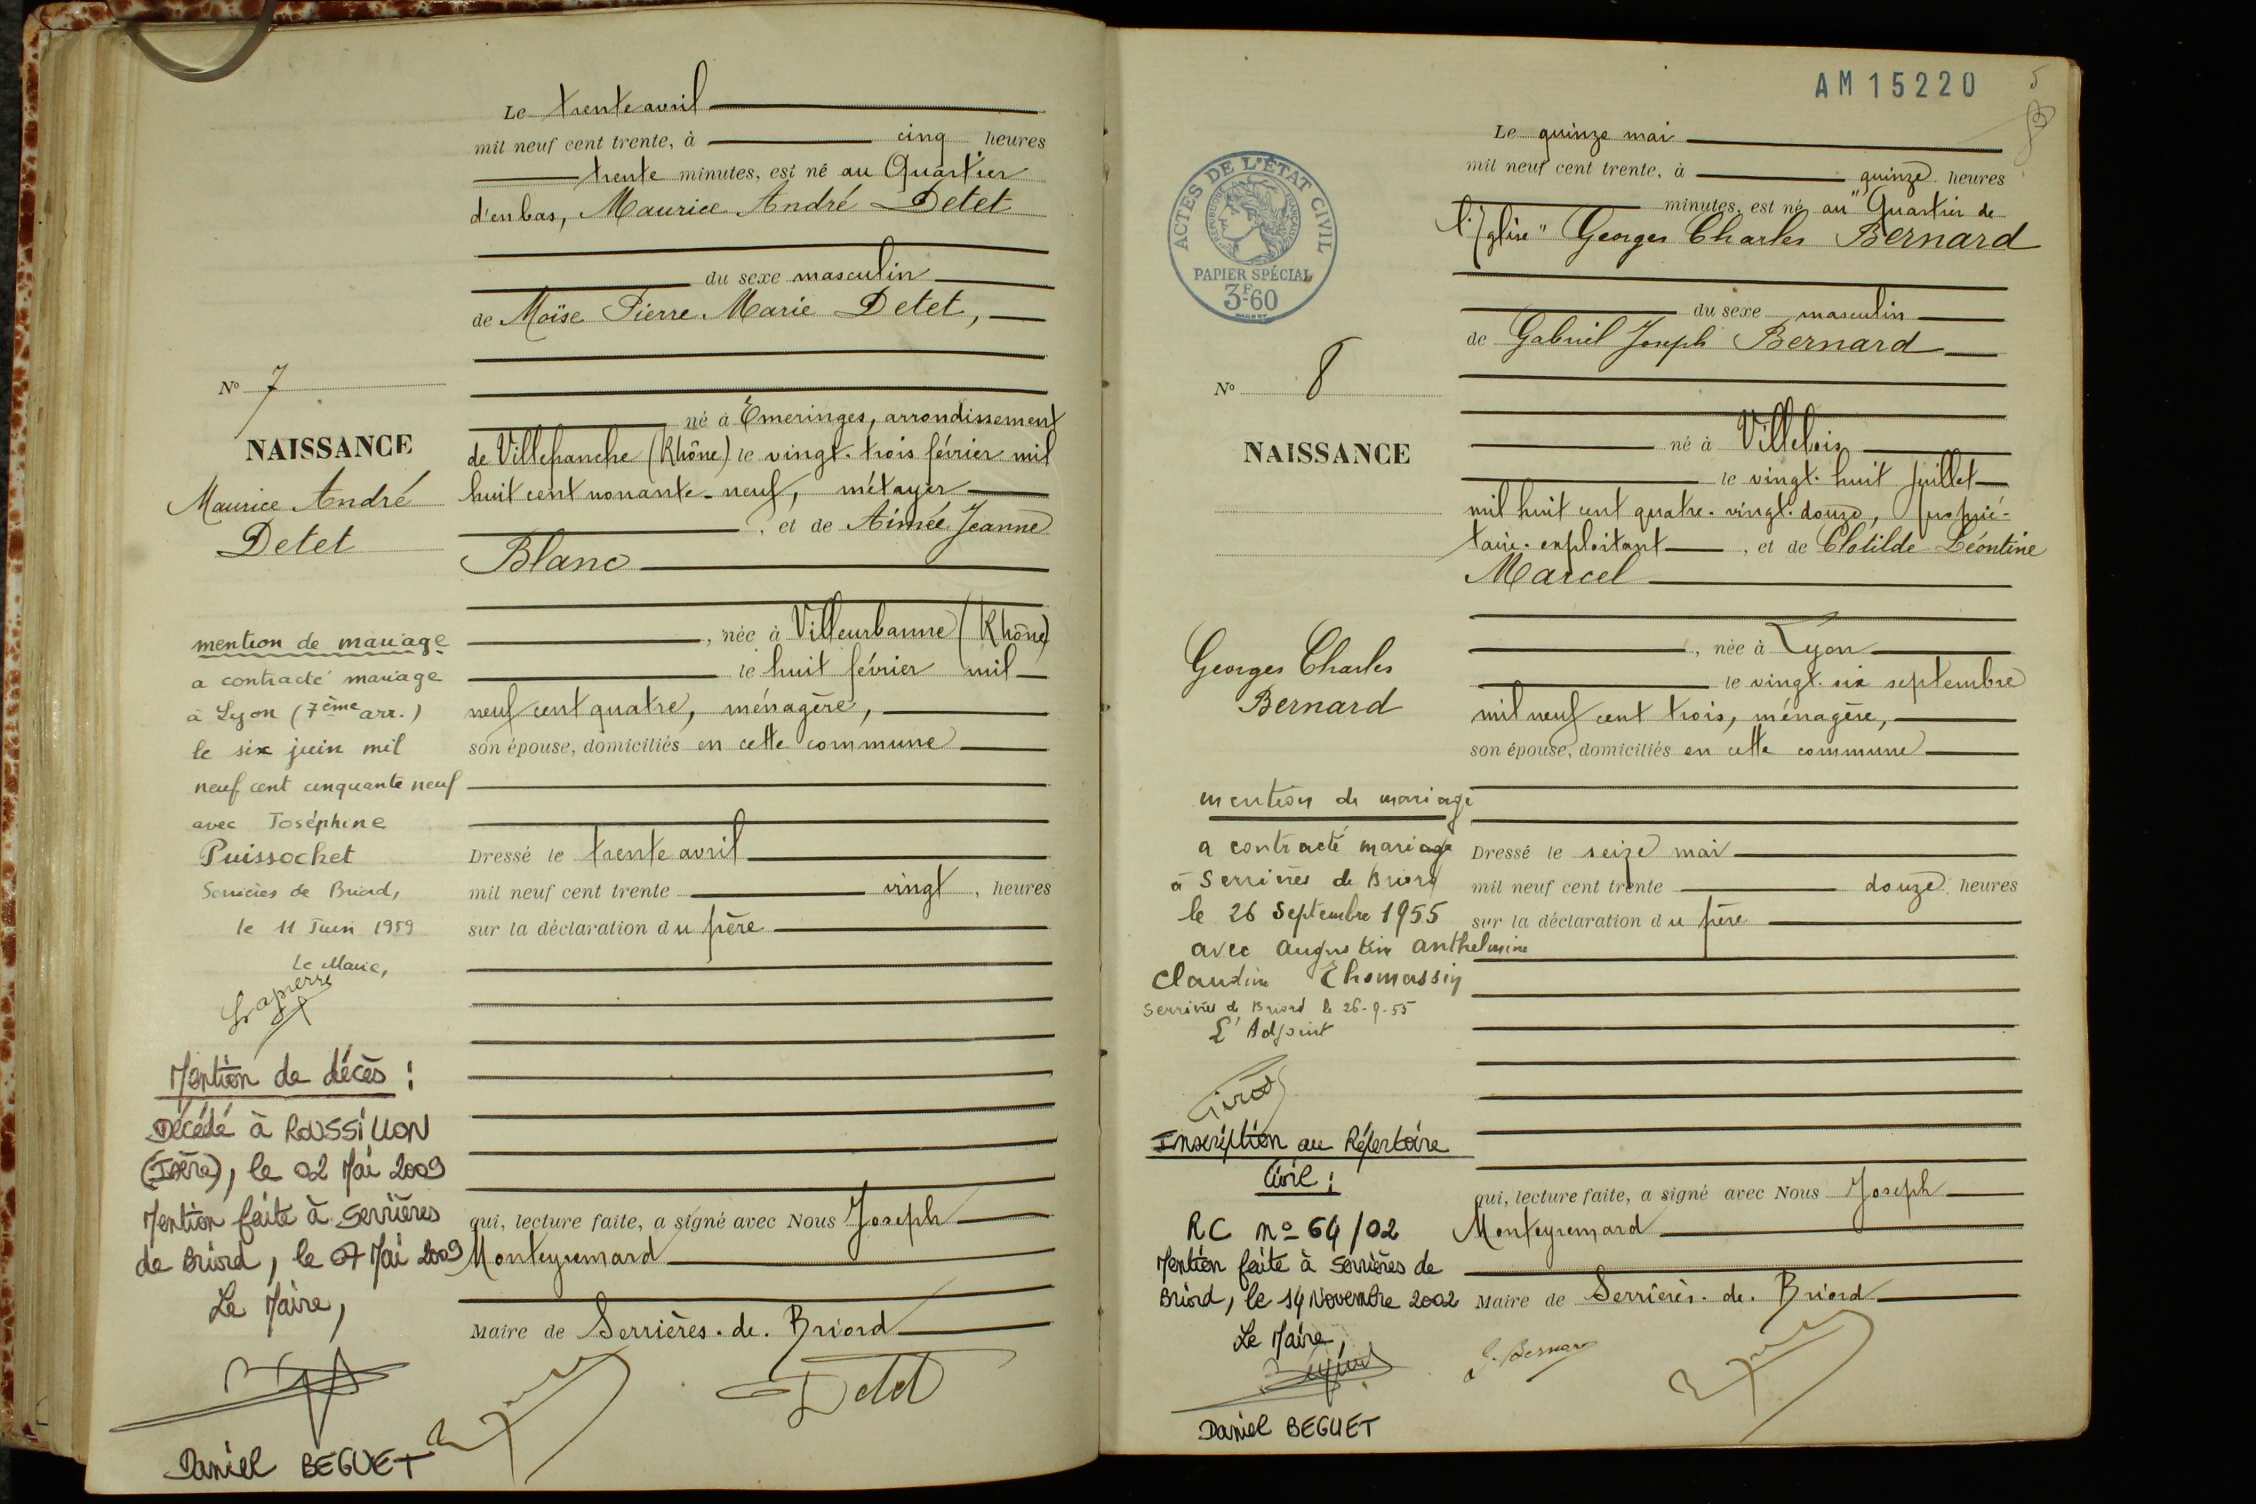 Le trente avril
mil neuf cent trente, à cinq heures
trente minutes, est né au Quartier
d'en bas, Maurice André Detet
du sexe masculin
de Moïse Pierre Marie Detet,
né à Emeringes, arrondissement
de Villefranche (Rhône) le vingt-trois février mil
huit cent nonante-neuf, métayer
, et de Aimée Jeanne
Blanc
, née à Villeurbanne (Rhône)
le huit février mil
neuf cent quatre, ménagère,
son épouse, domiciliés en cette commune
Dressé le trente avril
mil neuf cent trente vingt, heures
sur la déclaration du père
qui, lecture faite, a signé avec Nous Joseph
Monteyremard
Maire de Serrières-de-Briord
Detet
No 7
NAISSANCE
Maurice André
Detet
mention de mariage
a contracté mariage
à Lyon (7ème arr.)
le six juin mil
neuf cent cinquante neuf
avec Joséphine
Puissochet
Serrières de Briord,
le 11 Juin 1959
Le Maire,
Lapierre
Mention de décès :
Décédé à ROUSSILLON
(Isère), le 02 Mai 2009
Mention faite à Serrières
de Briord, le 07 Mai 2009
Le Maire,
Daniel BEGUET
AM 15220
5
ACTES DE L'ÉTAT CIVIL
RÉPUBLIQUE FRANÇAISE
PAPIER SPÉCIAL
3F60
Le quinze mai
mil neuf cent trente, à quinze heures
minutes, est né au "Quartier de
l'Eglise" Georges Charles Bernard
du sexe masculin
de Gabriel Joseph Bernard
né à Villebois
le vingt-huit juillet
mil huit cent quatre-vingt-douze, proprié-
taire-exploitant, et de Clotilde Léontine
Marcel
, née à Lyon
le vingt-six septembre
mil neuf cent trois, ménagère,
son épouse, domiciliés en cette commune
Dressé le seize mai
mil neuf cent trente douze heures
sur la déclaration du père
qui, lecture faite, a signé avec Nous Joseph
Monteyremard
Maire de Serrières-de-Briord
G. Bernard
No 8
NAISSANCE
Georges Charles
Bernard
mention de mariage
a contracté mariage
à Serrières de Briord
le 26 Septembre 1955
avec Augustin Anthelmine
Claudine Thomassin
Serrières de Briord le 26-9-55
L'Adjoint
Inscription au Répertoire
Civil :
RC no 64/02
Mention faite à Serrières de
Briord, le 14 Novembre 2002
Le Maire,
Daniel BEGUET